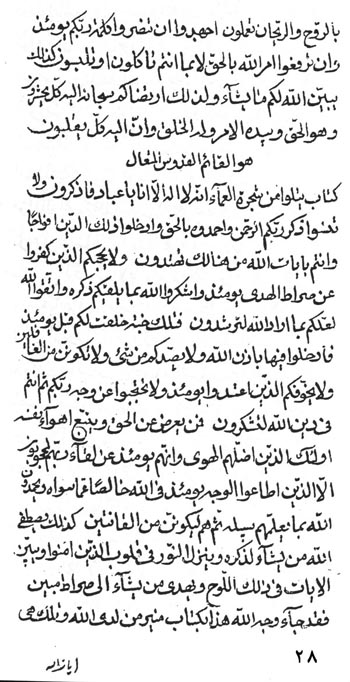 بالروح والريحان تعملون اجهدوا ان تنصروا كلمة ربكم يومئذ
وان ترفعوا امر الله بالحق لا بما انتم تاكلون او تلبسون كذلك
يبين الله لكم ما يشاء وان له كل يجزون
وهو الحق وبيده الامر وله الخلق وانا اليه كل يقلبون
هو القائم القدوس المتعال
كتاب يتلوا من شجرة العماء انه لا اله الا انا يا عباد فاذكرون ولا
تنسوا ذكر ربكم الرحمن واحدوه بالحق وادخلوا في ذلك الدين افواجا
وانتم بايات الله من هنالك تهتدون ولا يحجبكم الذين كفروا
عن صراط الهدى يومئذ واشكروا الله بما يلقيكم ذكره واتقوا الله
لعلكم بما اراد الله لترشدون فتلك جنة خلقت لكم قبل يومئذ
فادخلوا فيها باذن الله ولا يصدكم من شئ ولا تكونن من
ولا يخوفكم الذين اعتدوا يومئذ ولا تحتجبوا عن وجه ربكم ثم انتم
في دين الله لتشكرون فمن يعرض عن الحق ويتبع اهواء نفسه
اولئك الذين اضلهم الهوى وانهم يومئذ عن لقاء ربهم لمحجوبون
الا الذين اطاعوا الوجه يومئذ في الله خالصا عما سواه
الله بما يعليهم سبله ثم هم ليكونن من القانتين كذلك يصطفي
الله من يشاء لذكره وينزل النور في قلوب الذين امنوا ويبين
الايات في ذلك اللوح ويهدى من يشاء الى صراط مبين
فقد جاء وجه الله هذا بكتاب منير من لدى الله وتلك هى
٢٨